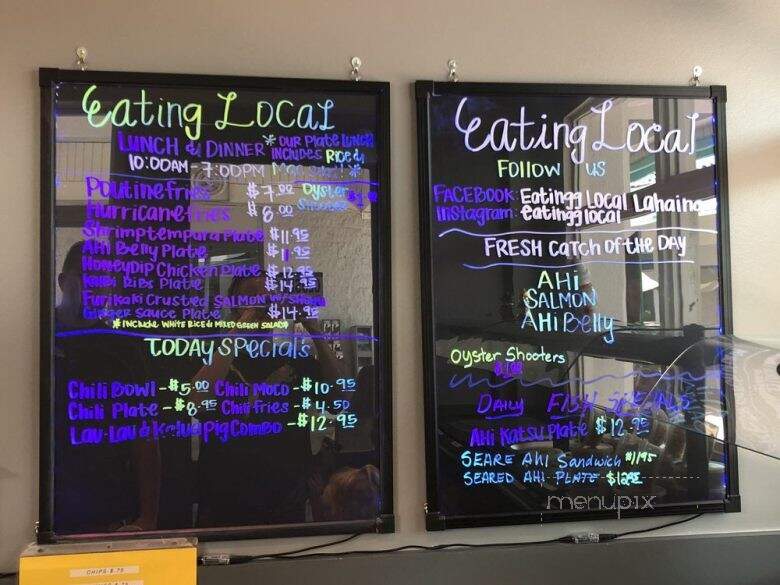 Eating Local
LUNCH & DINNER * OUR PLATE LUNCH
INCLUDES RICE &
10:00AM - 7:00PM Mac Salad! *
Poutine fries $7.00 Oyster
Hurricane fries $8.00 Shooters
Shrimp tempura Plate $11.95
AHi Belly Plate $11.95
Honey Dip Chicken Plate $12.95
Kalbi Ribs Plate $14.95
Furikaki Crusted SALMON W/ Shoyu
Ginger Sauce Plate $14.95
* INCludes WHITE RICE & MIXED GREEN SALAD
TODAY SPeciaLs
Chili Bowl - $5.00 Chili MOCO - $10.95
Chili Plate - $8.95 Chili fries - $4.50
Lau-Lau & Kalua Pig Combo - $12.95
Eating Local
FOLLOW US
FACEBOOK: Eatingg Local Lahaina
Instagram: eatingglocal
FRESH CatCH Of tHe DAY
AHI
SALMON
AHi Belly
Oyster SHooters
DAILY FISH SPECIALS
AHi Katsu Plate $12.95
SEARE AHI Sandwich $11.95
SEARED AHI PLATE $12.95
menupix
CHIPS $.75